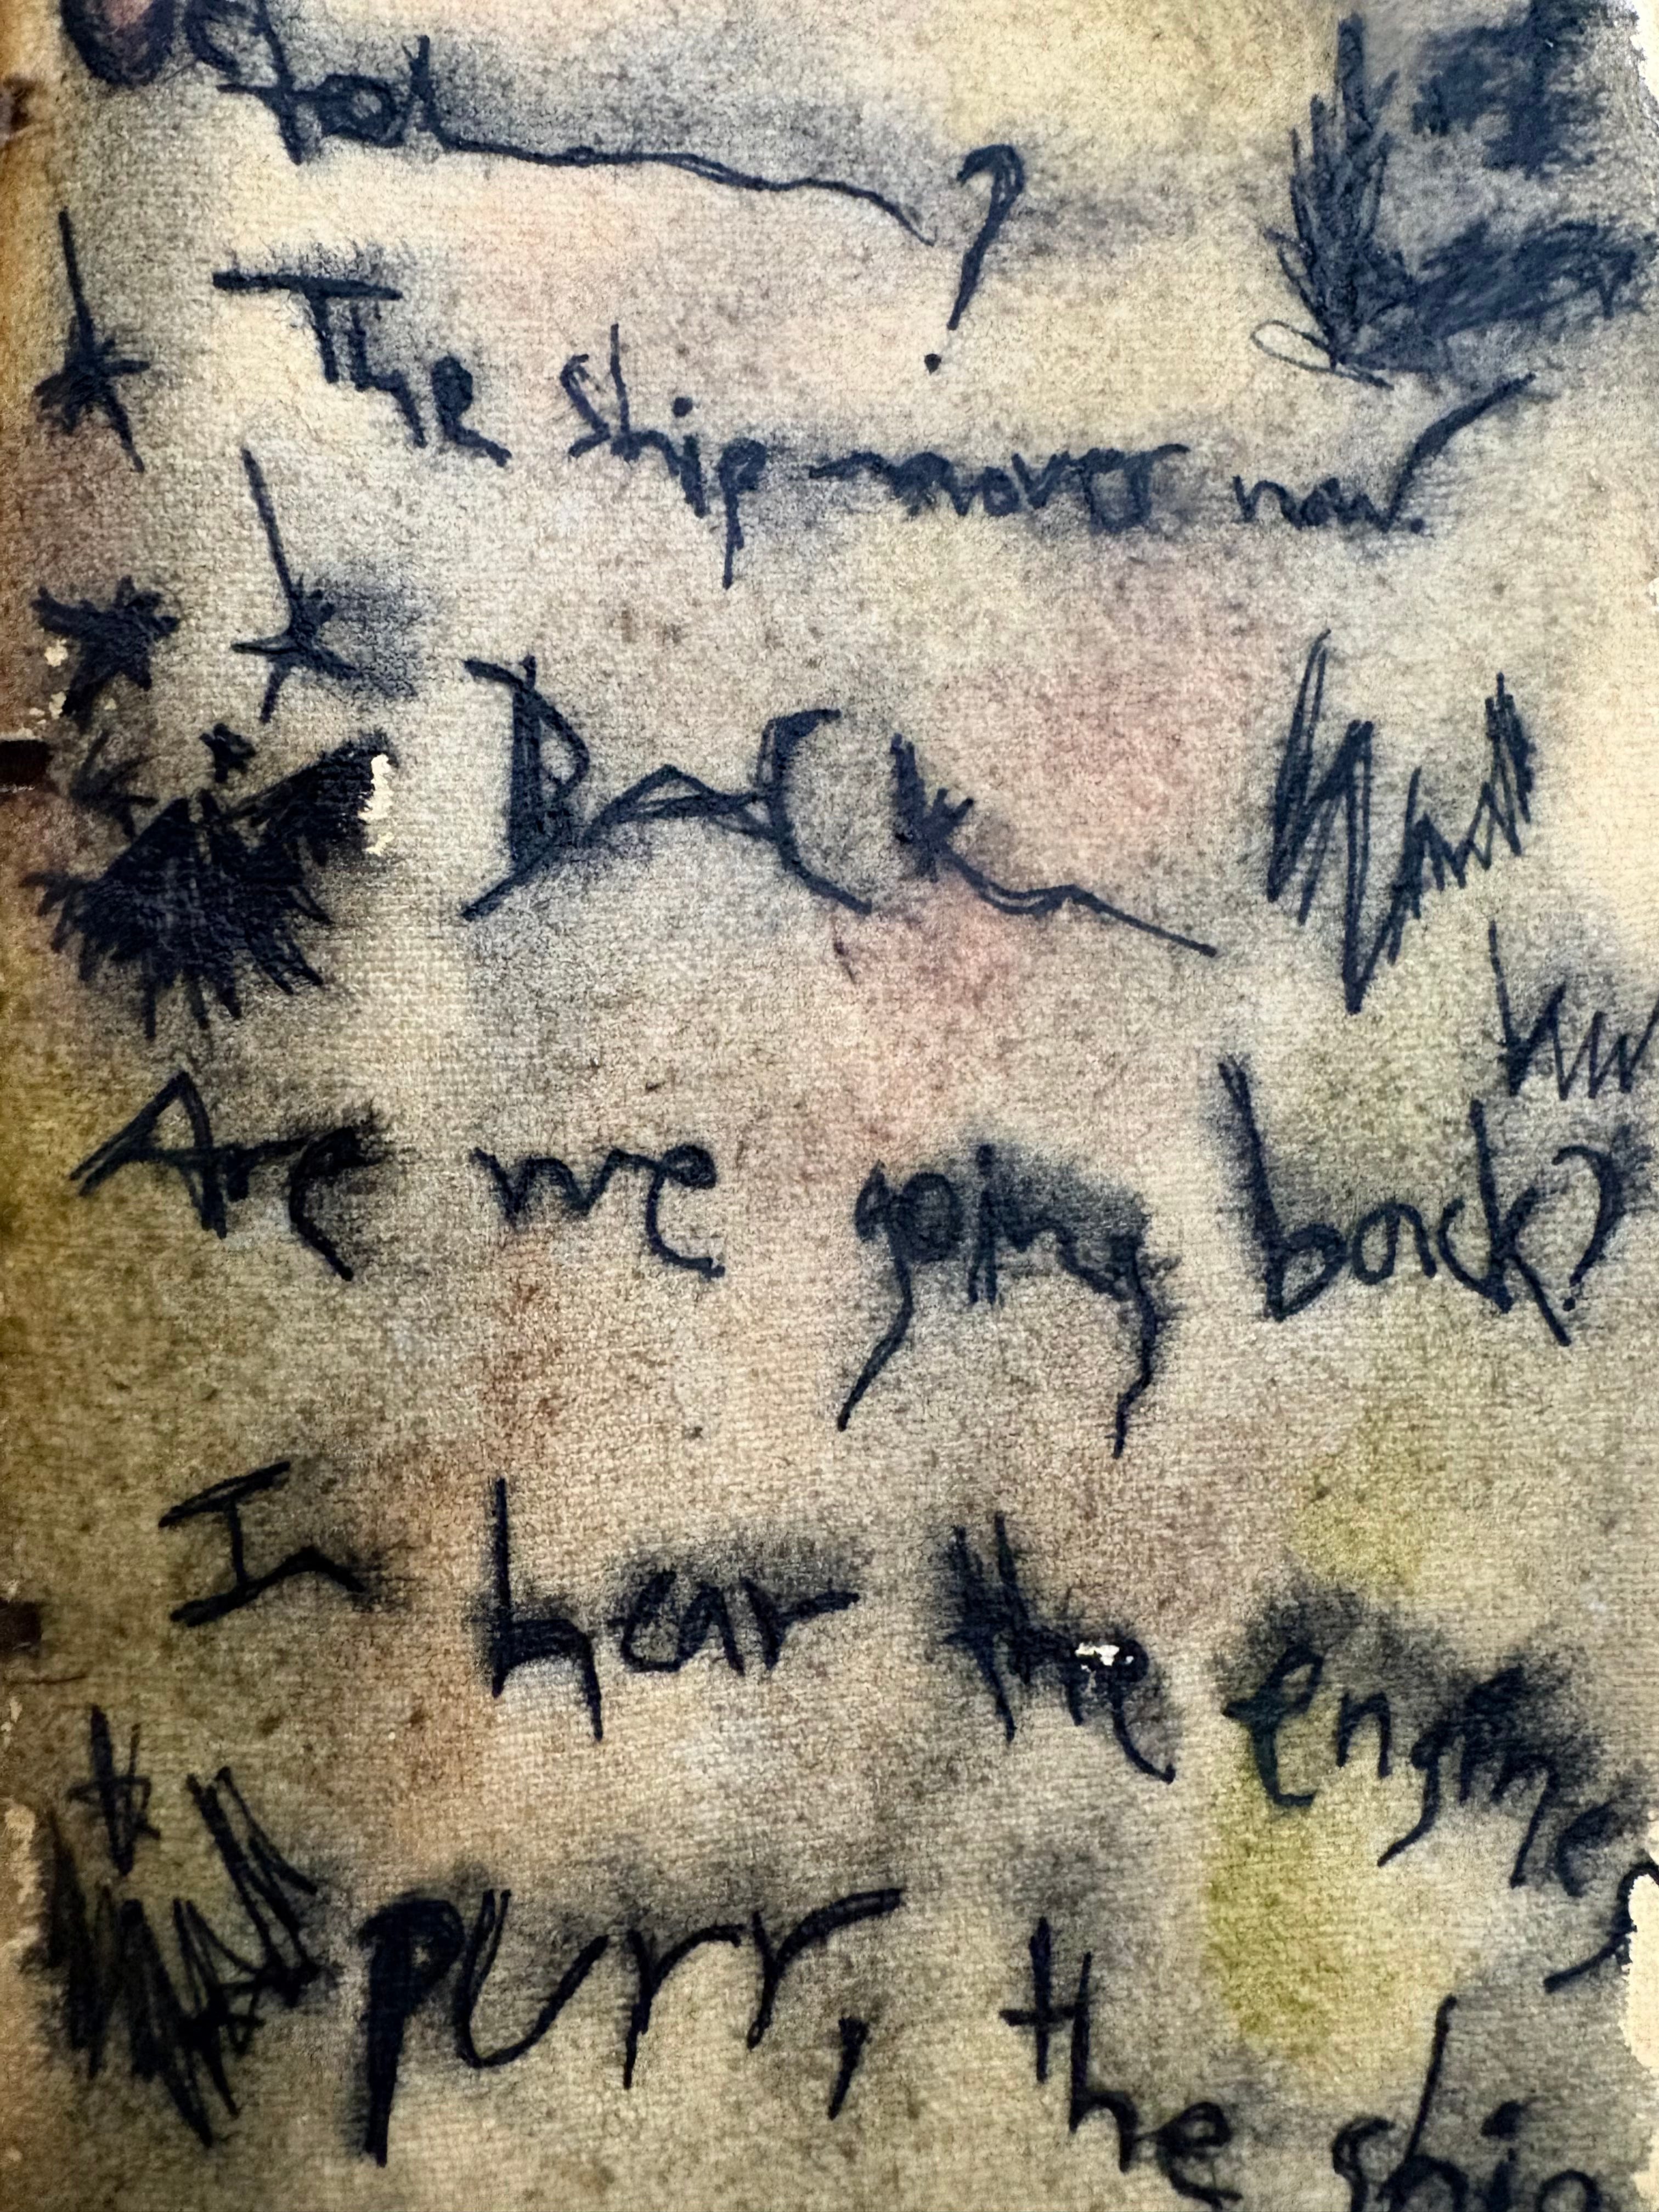 The ship moves now.
Back
Are we going back?
I hear the engines
purr, the ship